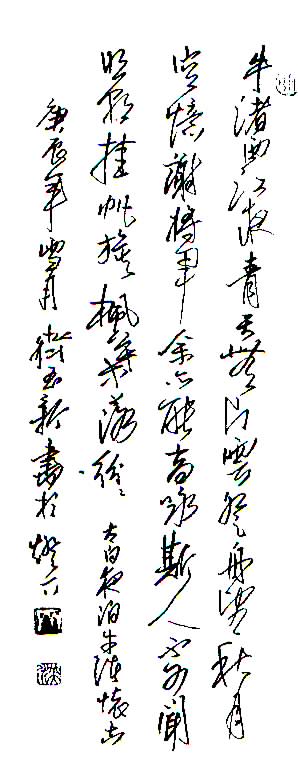 牛渚西江夜青天無片雲登舟望秋月
空憶謝將軍余亦能高詠斯人不可聞
明朝挂帆席楓葉落紛紛 太白夜泊牛渚懷古
庚辰年雪月書於燈下